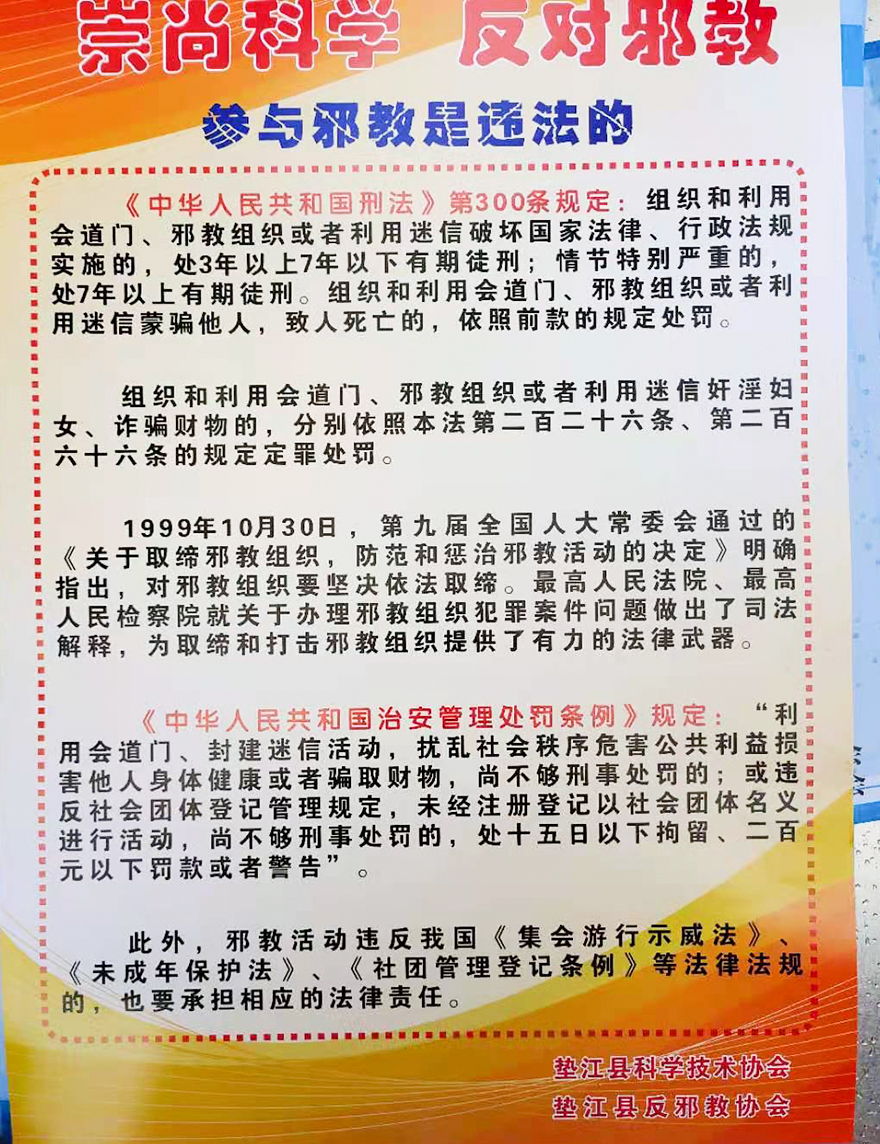 崇尚科学 反对邪教
参与邪教是违法的
《中华人民共和国刑法》第300条规定：组织和利用
会道门、邪教组织或者利用迷信破坏国家法律、行政法规
实施的，处3年以上7年以下有期徒刑；情节特别严重的，
处7年以上有期徒刑。组织和利用会道门、邪教组织或者利
用迷信蒙骗他人，致人死亡的，依照前款的规定处罚。
组织和利用会道门、邪教组织或者利用迷信奸淫妇
女、诈骗财物的，分别依照本法第二百二十六条、第二百
六十六条的规定定罪处罚。
1999年10月30日，第九届全国人大常委会通过的
《关于取缔邪教组织，防范和惩治邪教活动的决定》明确
指出，对邪教组织要坚决依法取缔。最高人民法院、最高
人民检察院就关于办理邪教组织犯罪案件问题做出了司法
解释，为取缔和打击邪教组织提供了有力的法律武器。
《中华人民共和国治安管理处罚条例》规定：“利
用会道门、封建迷信活动，扰乱社会秩序危害公共利益损
害他人身体健康或者骗取财物，尚不够刑事处罚的；或违
反社会团体登记管理规定，未经注册登记以社会团体名义
进行活动，尚不够刑事处罚的，处十五日以下拘留、二百
元以下罚款或者警告”。
此外，邪教活动违反我国《集会游行示威法》、
《未成年保护法》、《社团管理登记条例》等法律法规
的，也要承担相应的法律责任。
垫江县科学技术协会
垫江县反邪教协会